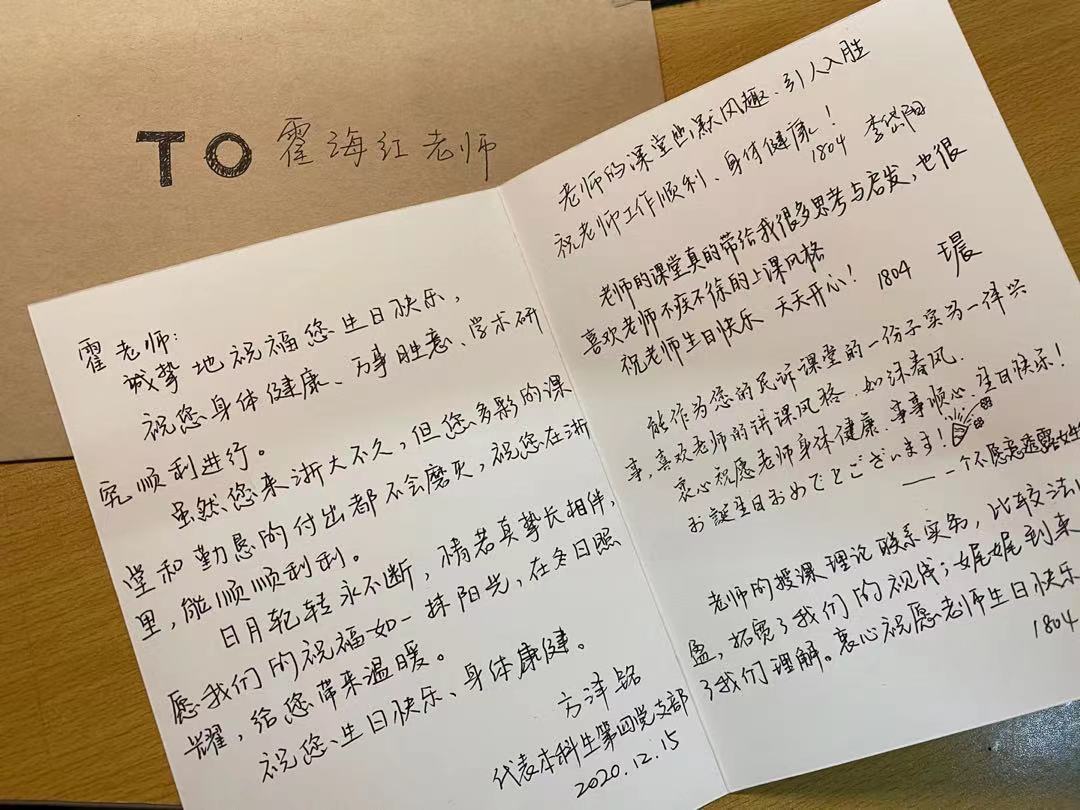 TO 霍海红老师
霍老师:
诚挚地祝福您生日快乐,
祝您身体健康、万事胜意、学术研
究顺利进行。
虽然您来浙大不久,但您多彩的课
堂和勤恳的付出都不会磨灭,祝您在浙
里,能顺顺利利。
日月轮转永不断,情若真挚长相伴,
愿我们的祝福如一抹阳光,在冬日照
耀,给您带来温暖。
祝您、生日快乐、身体康健。
方泽铭
代表本科生第四党支部
2020.12.15
老师的课堂幽默风趣、引人入胜
祝老师工作顺利、身体健康!
1804 李岱阳
老师的课堂真的带给我很多思考与启发,也很
喜欢老师不疾不徐的上课风格
祝老师生日快乐 天天开心! 1804 王晨
能作为您的民诉课堂的一份子实为一件兴
事,喜欢老师的讲课风格,如沐春风.
衷心祝愿老师身体健康、事事顺心、生日快乐!
お誕生日おめでとございます!
——一个不愿意透露姓
老师的授课理论联系实务,比较法
盈,拓宽了我们的视线;娓娓到来
了我们理解。衷心祝愿老师生日快乐
1804